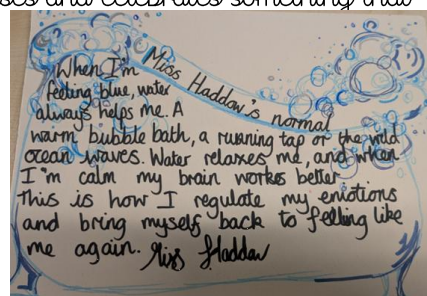 ses and celebrates something that
Miss Haddow's normal
When I'm
feeling blue, water
always helps me. A
warm bubble bath, a running tap or the wild
ocean waves. Water relaxes me, and when
I'm calm my brain works better
This is how I regulate my emotions
and bring myself back to feeling like
me again. Miss Haddow